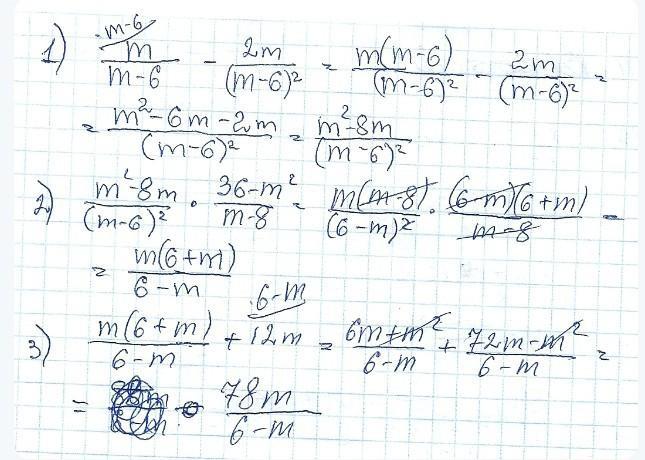 1) m/(m-6) ·m-6 - 2m/(m-6)² = m(m-6)/(m-6)² - 2m/(m-6)² =
= (m²-6m-2m)/(m-6)² = (m²-8m)/(m-6)²
2) (m²-8m)/(m-6)² · (36-m²)/(m-8) = m(m-8)/(6-m)² · (6-m)(6+m)/(m-8) =
= m(6+m)/(6-m)
3) m(6+m)/(6-m) + 12m ·6-m = (6m+m²)/(6-m) + (72m-m²)/(6-m) =
= 78m/(6-m)